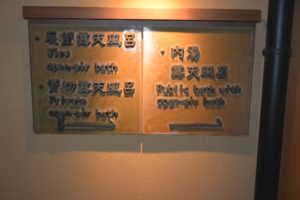 ・展望露天風呂
View
open-air bath
・貸切露天風呂
Private
open-air bath
・内湯
露天風呂
Public bath with
open-air bath